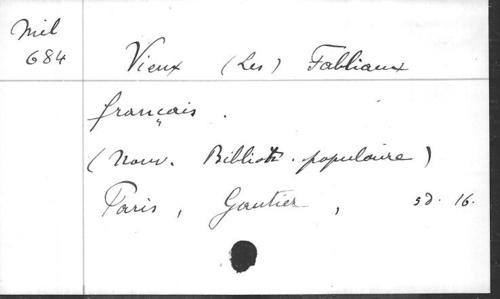 Mil
684
Vieux (Les) Fabliaux
français.
(Nouv. Biblioth. populaire)
Paris, Gautier, sd. 16.